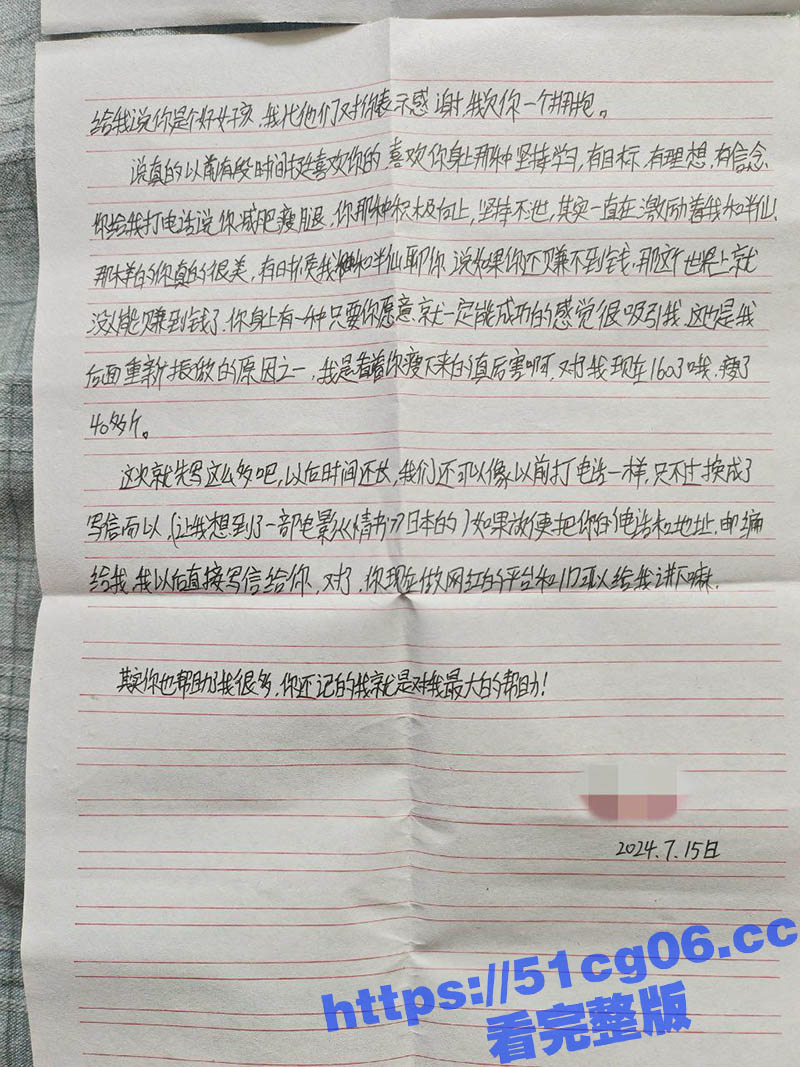 给我说你是个好女孩，我代他们对你表示感谢，我欠你一个拥抱。
说真的以前有段时间挺喜欢你的，喜欢你身上那种坚持学习，有目标，有理想，有信念
你给我打电话说你减肥瘦腿，你那种积极向上，坚持不泄，其实一直在激励着我和半仙，
那样的你真的很美，有时候我和半仙聊你，说如果你还赚不到钱，那这个世界上就
没人能赚到钱了，你身上有一种只要你愿意就一定能成功的感觉很吸引我，这也是我
后面重新振做的原因之一，我是看着你瘦下来的真厉害啊，对了我现在160了哦，瘦了
40多斤。
这次就先写这么多吧，以后时间还长，我们还可以像以前打电话一样，只不过换成了
写信而以，（让我想到了一部电影《情书》日本的）如果方便把你的电话和地址，邮编
给我，我以后直接写信给你，对了，你现在做网红的平台和ID可以给我讲下嘛，
其实你也帮助了我很多，你还记的我就是对我最大的帮助！
2024.7.15日
https://51cg06.cc
看完整版